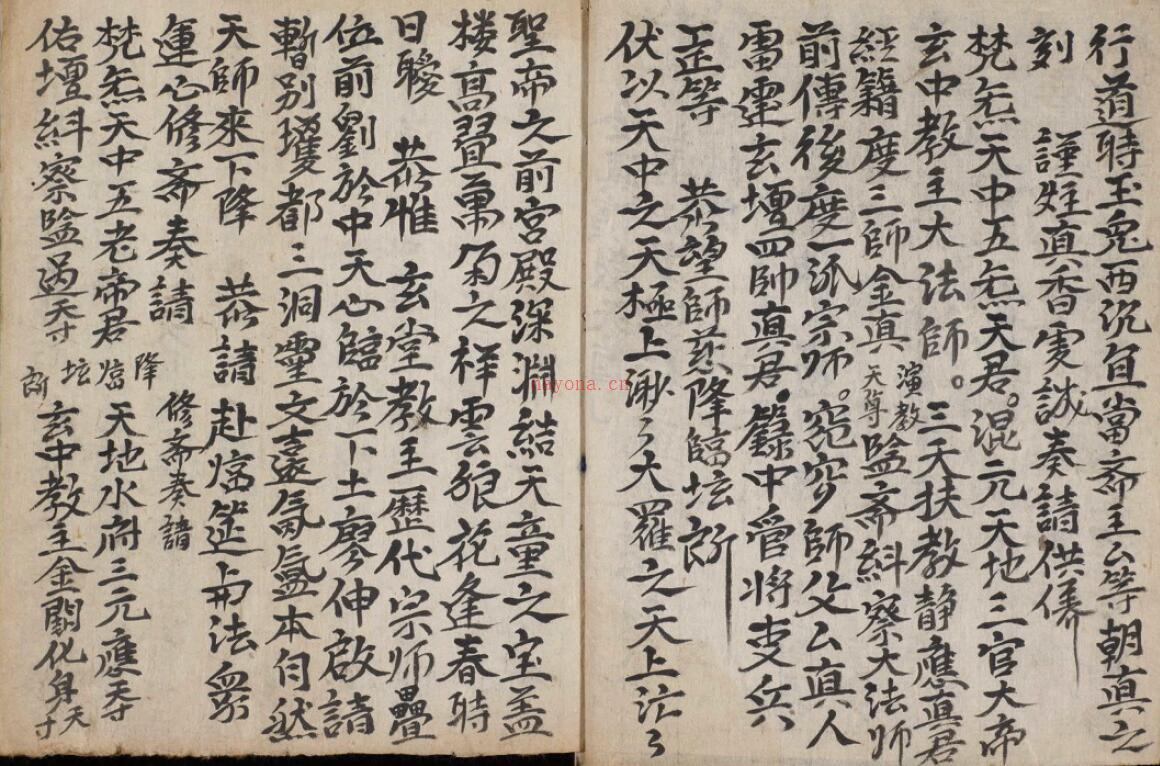 行道時玉兔西沉直當斋主厶等朝真之
刻　謹炷真香虔誠奏請供儀
梵炁天中五炁天君。混元天地三官大帝
玄中教主大法師。三天扶教静應真君
經籍度三師金真演教天尊監斋糾察大法师
前傳後度一派宗师。窈穷師父厶真人
雷霆玄壇四帥真君。籙中官将吏兵
等　恭望師慈降臨坛所
伏以天中之天極上渺々大羅之天上茫々
聖帝之前宫殿深渊結天童之宝盖
楼高疊萬之祥雲花逢春時
日曖　恭惟　玄堂教主歷代宗师疊
位前劉於中天心臨於下土廖伸啟請
暫別瓊都三洞靈文遠氤氲本自然
天師來下降　恭請　赴壇筵与法衆
運心修斋奏請　修斋奏請
梵炁天中五老帝君　降臨坛所　天地水府三元應天寸
佑壇糾察監過天寸　玄中教主金闕化身天寸
nayona.cn